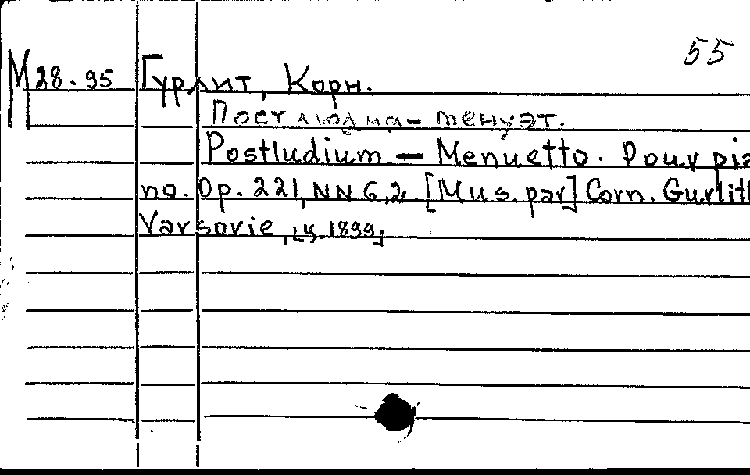 55
М 28-95 Гурлит, Корн.
Постлюдиа - менуэт.
Postludium — Menuetto. Pour pia
no. Op. 221, NN 6,2. [Mus. par] Corn. Gurlitt
Varsovie, [ц. 1899]